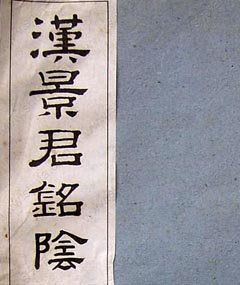 漢景君銘陰